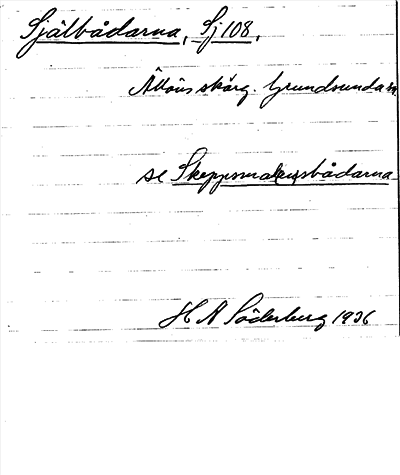 Själbådarna, Sj 108.
skärg. Grundsunda sn.
se Skeppsmalensbådarna
H A Söderberg 1936